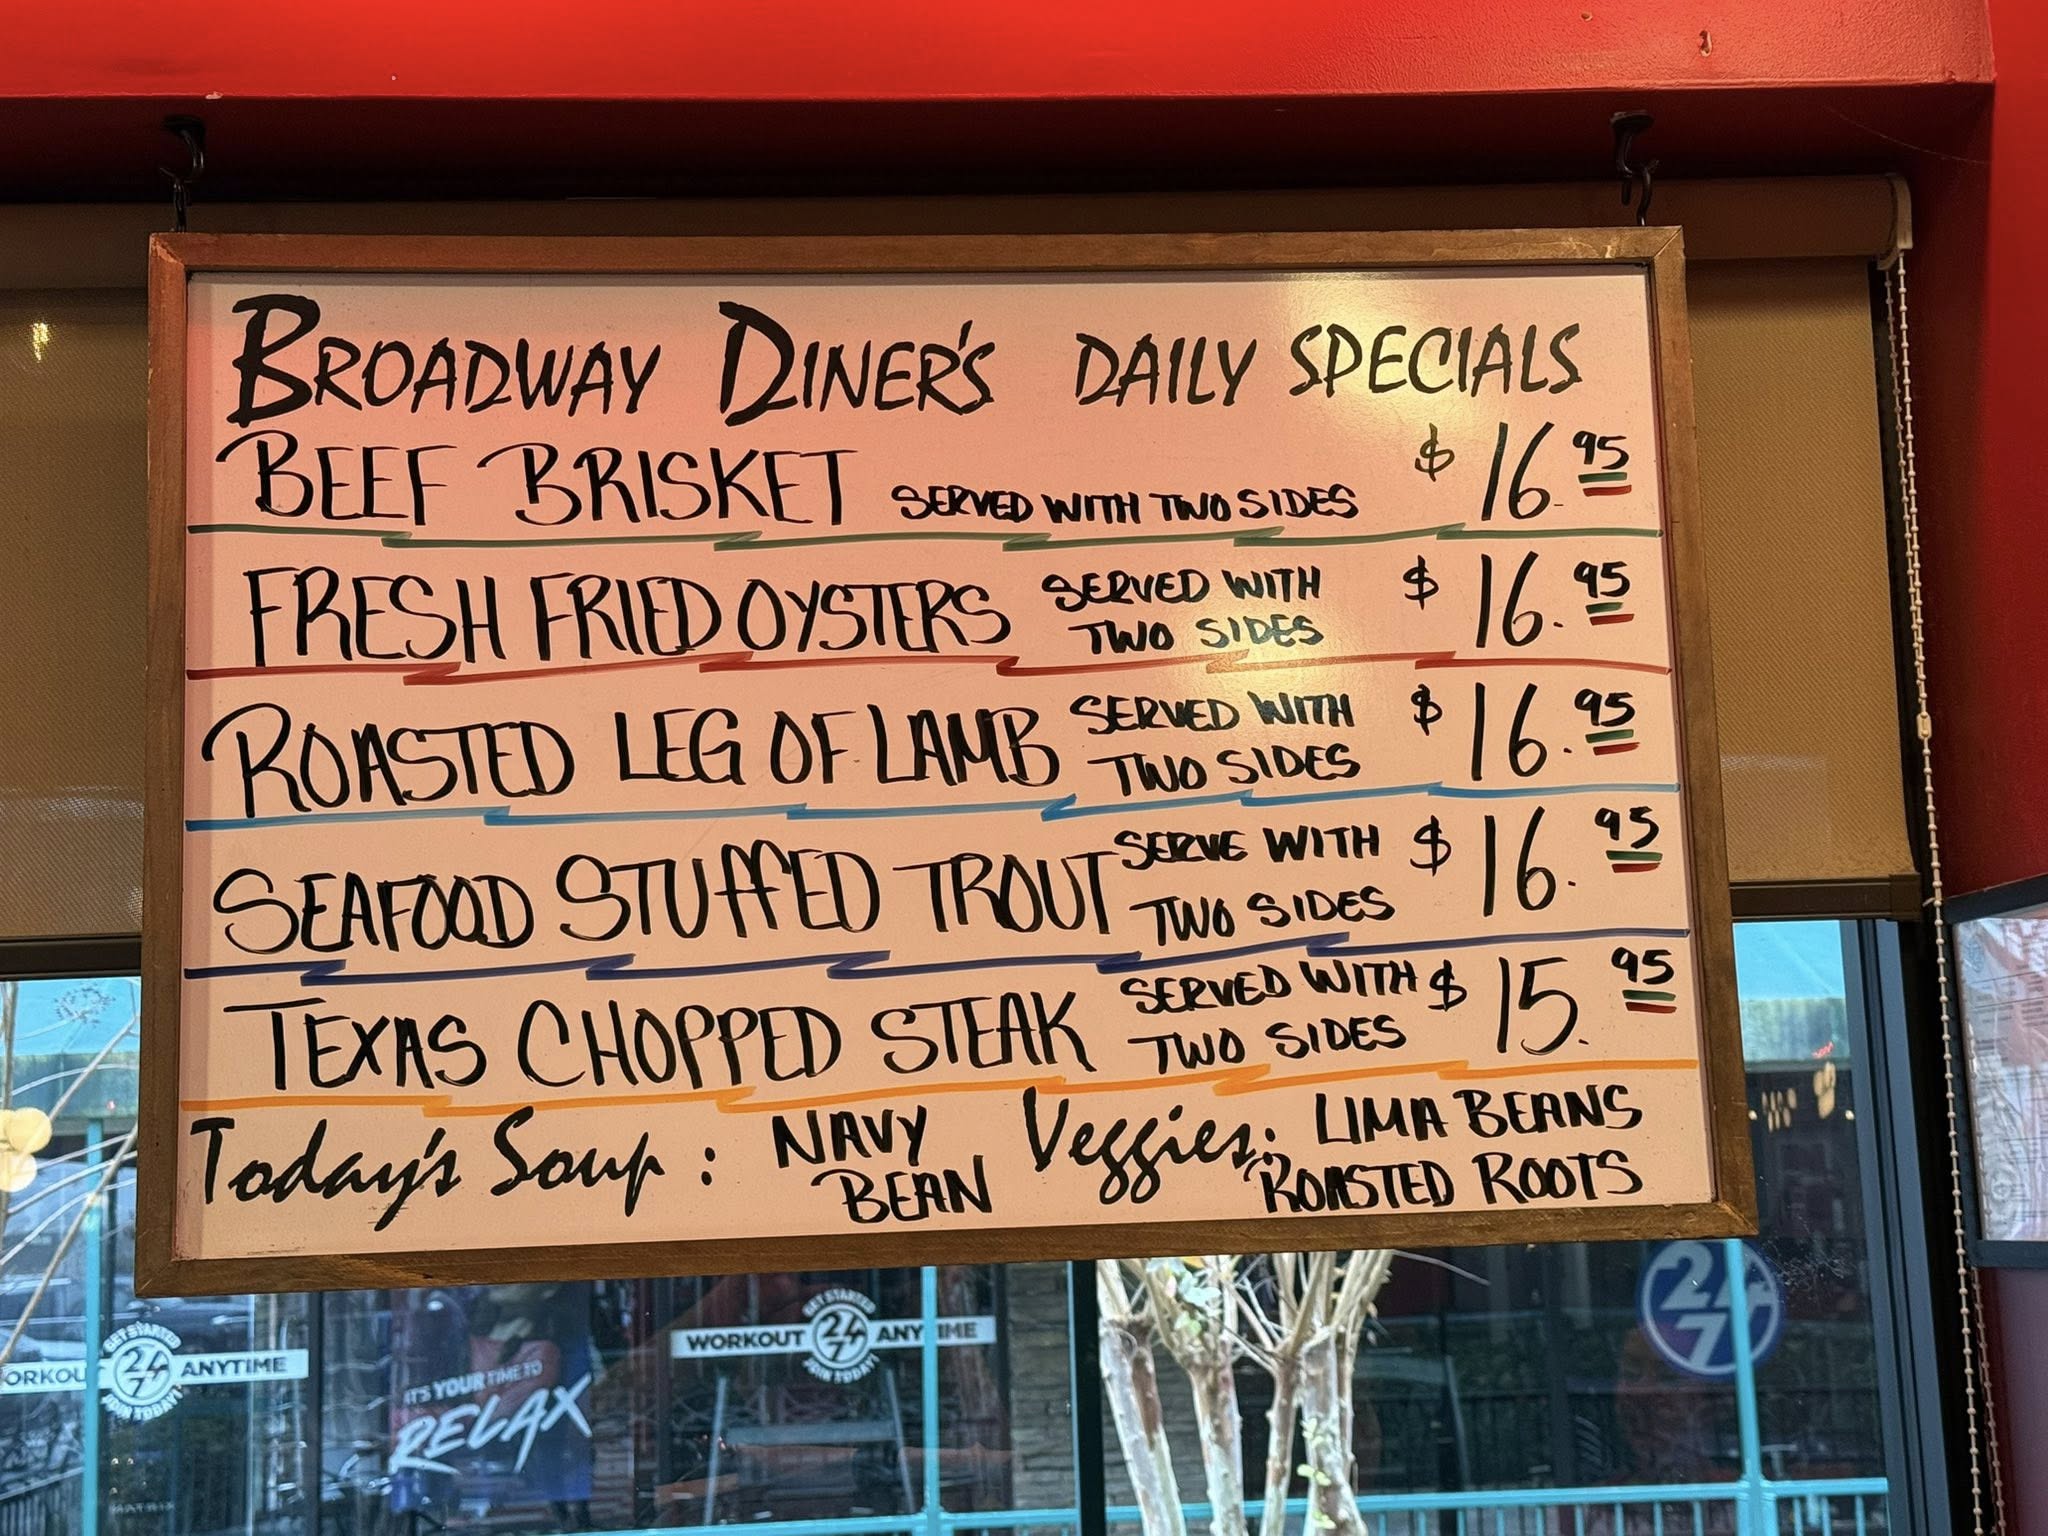 BROADWAY DINER'S DAILY SPECIALS
BEEF BRISKET SERVED WITH TWO SIDES $16.95
FRESH FRIED OYSTERS SERVED WITH TWO SIDES $16.95
ROASTED LEG OF LAMB SERVED WITH TWO SIDES $16.95
SEAFOOD STUFFED TROUT SERVE WITH TWO SIDES $16.95
TEXAS CHOPPED STEAK SERVED WITH TWO SIDES $15.95
Today's Soup: NAVY BEAN
Veggies: LIMA BEANS
ROASTED ROOTS
GET STARTED
WORKOUT 24/7 ANYTIME
JOIN TODAY!
GET STARTED
ORKOUT 24/7 ANYTIME
JOIN TODAY!
IT'S YOUR TIME TO
RELAX
MATRIX
24/7